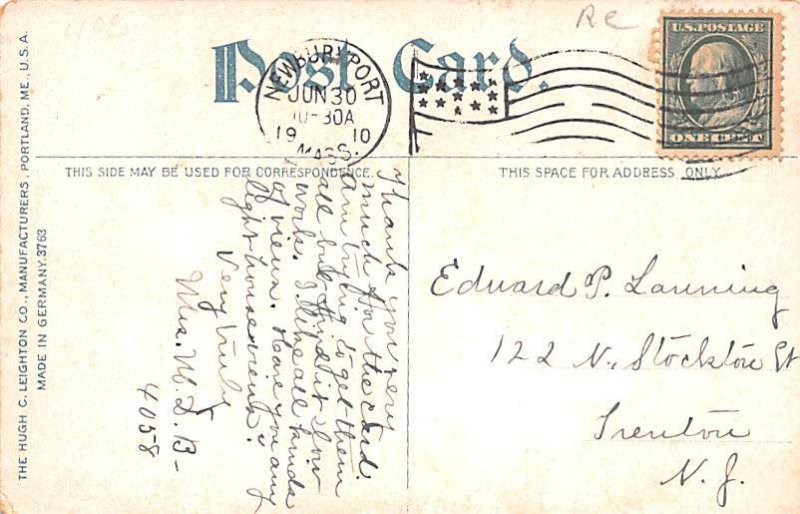 Post Card.
NEWBURYPORT
JUN 30
10-30A
19 10
MASS.
U.S. POSTAGE
ONE CENT
Re
THIS SIDE MAY BE USED FOR CORRESPONDENCE.
THIS SPACE FOR ADDRESS ONLY.
Thank you very
much for the card.
am trying to get them
all but find it slow
work. I like all kinds
of views. Have you any
light house views?
Very truly
Mrs. M. L. B-
4058
Edward P. Lanning
122 N. Stockton St
Trenton
N. J.
THE HUGH C. LEIGHTON CO., MANUFACTURERS, PORTLAND, ME., U.S.A.
MADE IN GERMANY. 3763